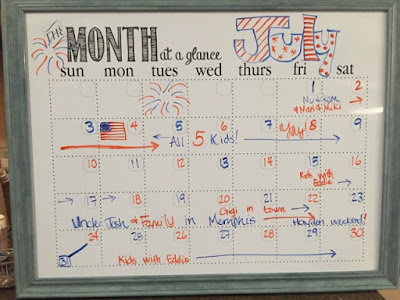 THE MONTH at a glance July
sun mon tues wed thurs fri sat
1 2
3 4 5 6 7 8 9
All 5 Kids! Yay!
10 11 12 13 14 15 16
Kids with
Eddie
17 18 19 20 21 22 23
Gigi in town
Uncle Josh & Family in Memphis weekend!
24 25 26 27 28 29 30
31 Kids with Eddie